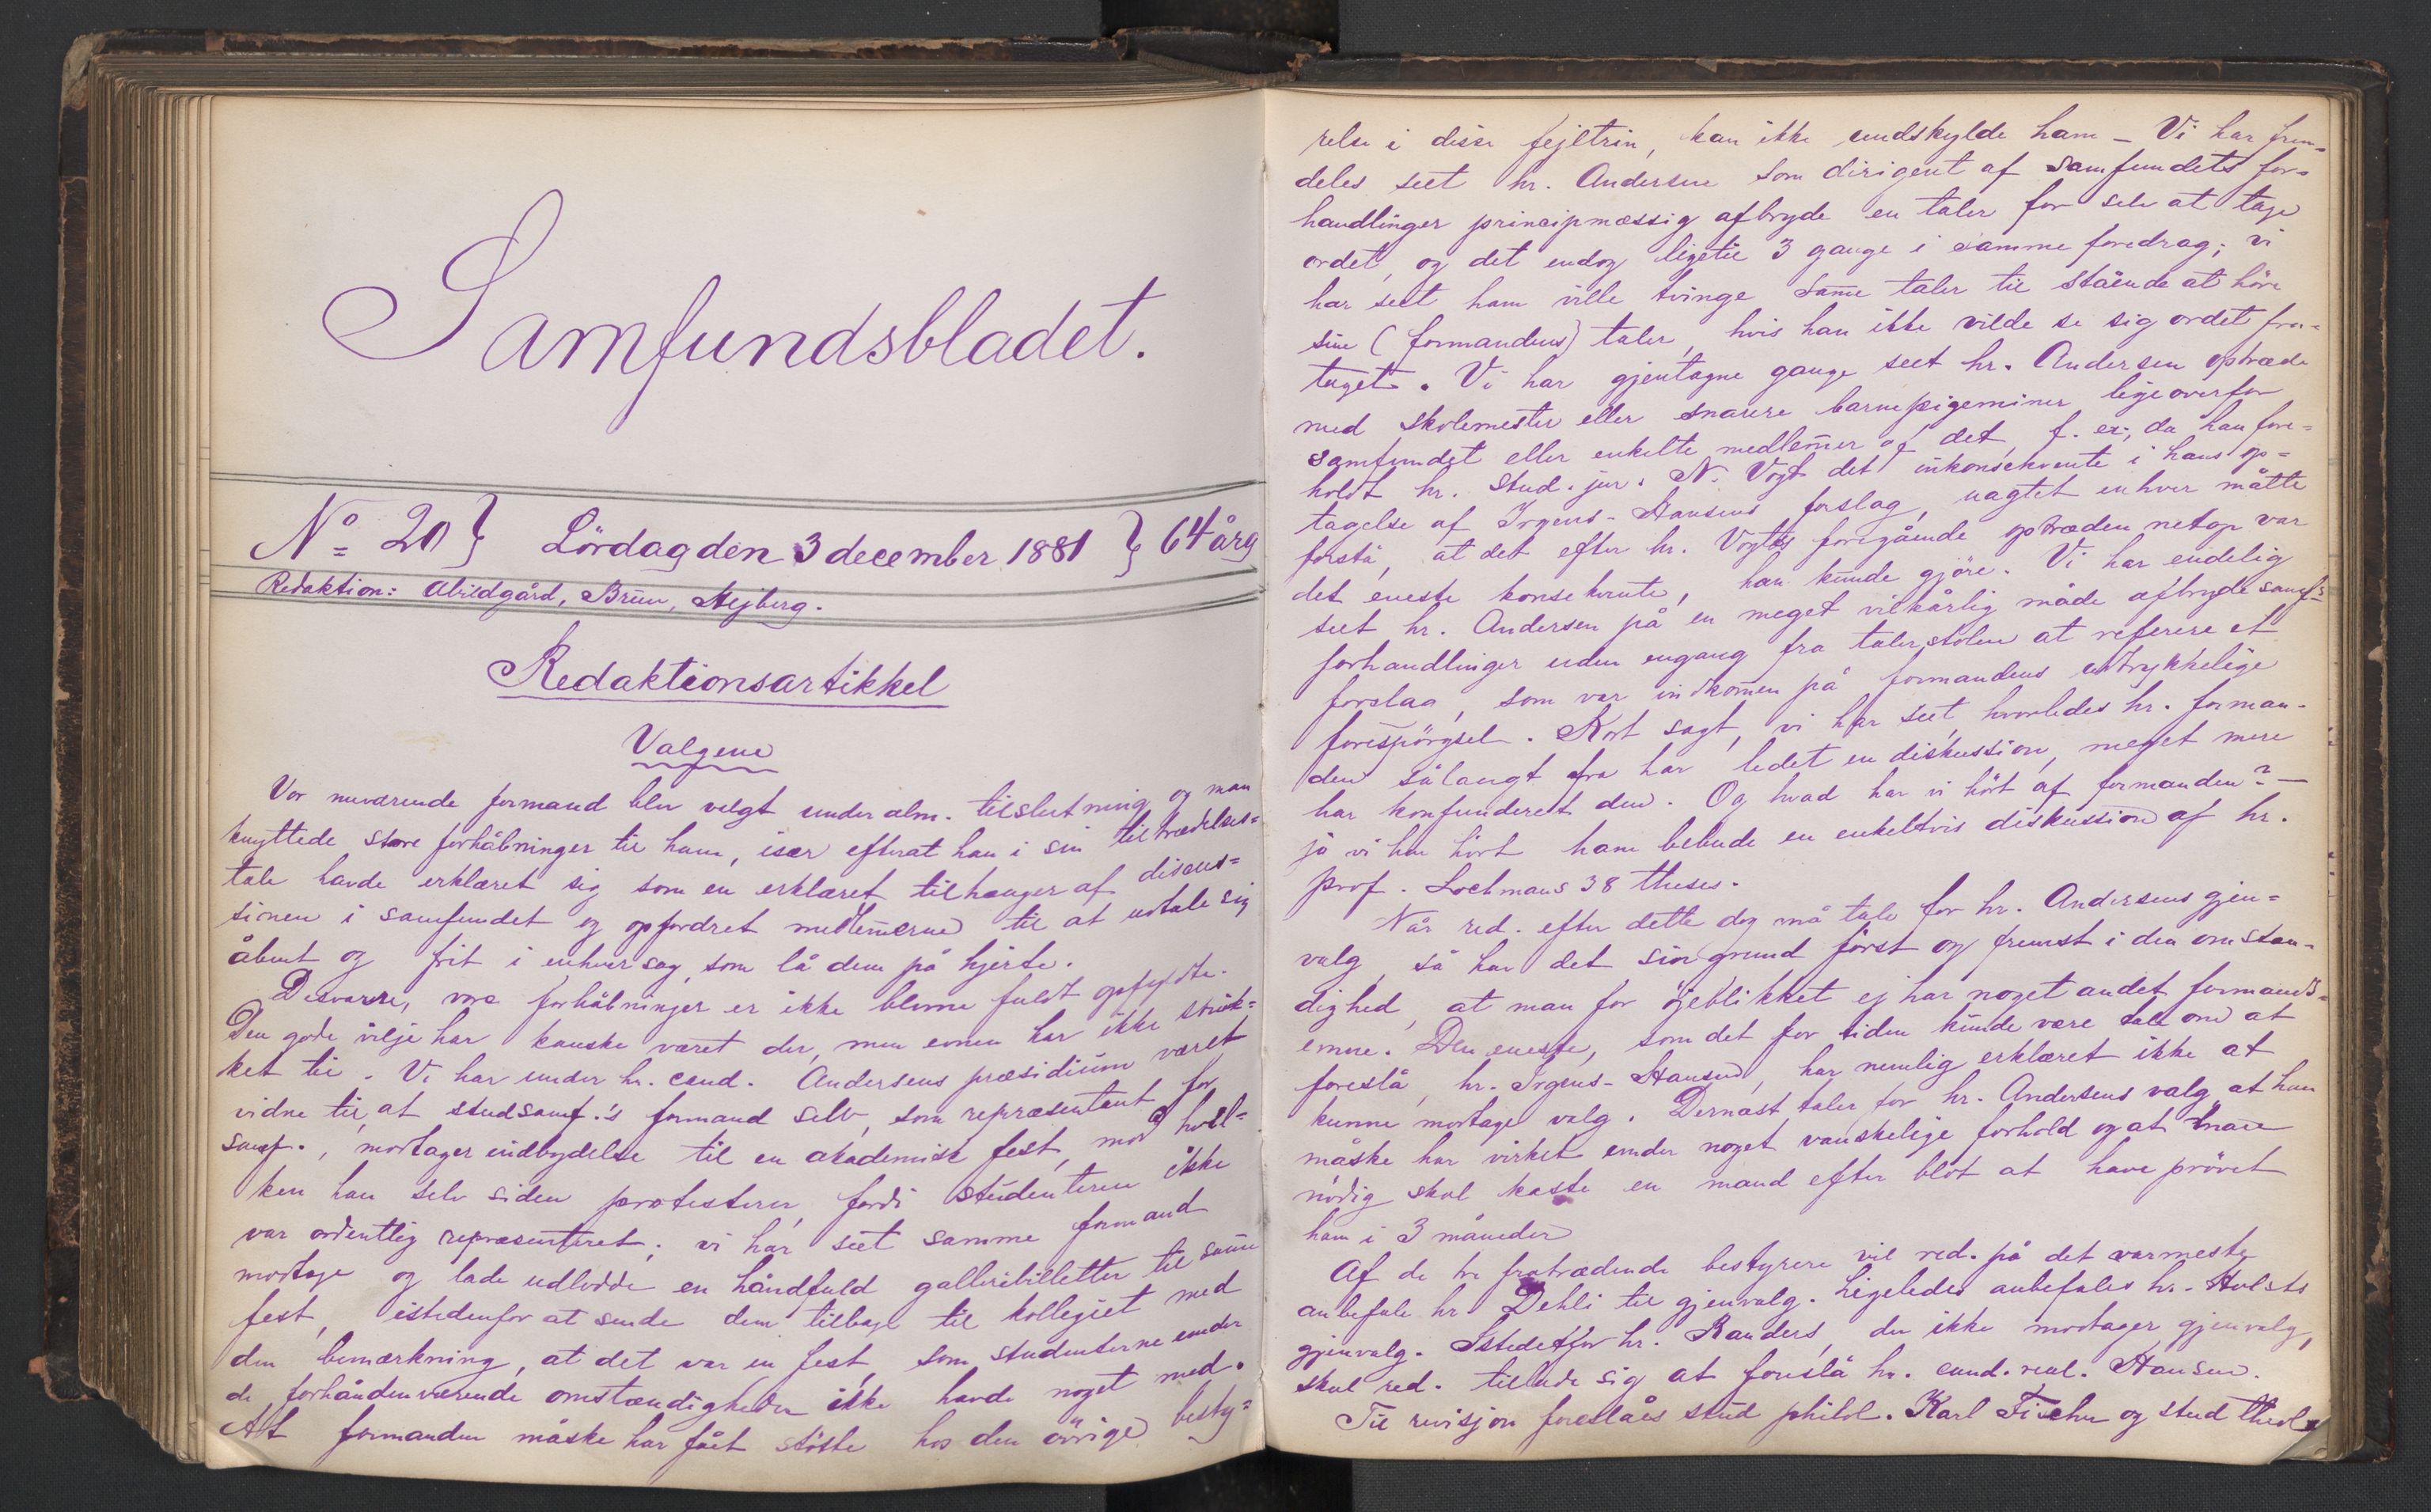 Samfundsbladet.
No 20 } Lördag den 3 december 1881 } 64 årg
Redaktion: Abildgård, Brun, Hejberg.
Redaktionsartikkel
Valgene
Vor nuværende formand blev valgt under alm. tilslutning og man
knyttede store forhåbninger til ham, især efterat han i sin tiltrædelses=
tale havde erklæret sig som en erklæret tilhænger af discus=
sionen i samfundet og opfordret medlem̄erne til at udtale sig
åbent og frit i enhver sag, som lå dem på hjerte.
Desværre, vore forhåbninger er ikke blevne fuldt opfyldte.
Den gode vilje har kanske været der, men evnen har ikke strük=
ket til. Vi har under hr. cand. Andersens præsidium været
vidne til, at studsamf.'s formand selv, som repræsentant for
samf., modtager indbydelse til en akademisk fest, mod hvil=
ken han selv siden protesterer, fordi studenteren ikke
var ordentlig repræsenteret; vi har seet samme formand
modtage og lade udlodde en håndfuld galleribilletter til sam̄e
fest, istedenfor at sende dem tilbage til kollegiet med
den bemærkning, at det var en fest, som studenterne under
de forhåndenværende omstændigheder ikke havde noget med.
At formanden måske har fået støtte hos den övrige besty=
relse i disse fejltrin, kan ikke undskylde ham – Vi har frem=
deles seet hr. Andersen som dirigent af samfundets for=
handlinger principmæssig afbryde en taler for selv at tage
ordet, og det endog ligetil 3 gange i samme foredrag; vi
har seet ham ville tvinge sam̄e taler til stående at höre
sine (formandens) taler, hvis han ikke vilde se sig ordet fra=
taget. Vi har gjentagne gange seet hr. Andersen optræde
med skolemester eller snarere barnepigeminer ligeoverfor
samfundet eller enkelte medlem̄er af det, f. ex., da han fore=
holdt hr. stud. jur. N. Vogt det inkonsekvente i hans op=
tagelse af Irgens-Hansens forslag, uagtet enhver måtte
forstå, at det efter hr. Vogts foregående optræden netop var
det eneste konsekvente, han kunde gjöre. Vi har endelig
seet hr. Andersen på en meget vilkårlig måde afbryde samf.s
forhandlinger uden engang fra talerstolen at referere et
forslag, som var indkom̄en på formandens udtrykkelige
forespörgsel. Kort sagt, vi har seet, hvorledes hr. forman=
den sålangt fra har ledet en diskussion, meget mere
har konfunderet den. Og hvad har vi hört af formanden? –
jo vi har hört ham bebude en enkeltvis diskussion af hr.
prof. Lochmans 38 theses.
Når red. efter dette dog må tale for hr. Andersens gjen=
valg, så har det sin grund först og fremst i den omstæn=
dighed, at man for öjeblikket ej har noget andet formands=
emne. Den eneste, som det for tiden kunde være tale om at
foreslå, hr. Irgens-Hansen, har nemlig erklæret ikke at
kunne modtage valg. Dernæst taler for hr. Andersens valg, at han
måske har virket under noget vanskelige forhold og at man
nödig skal kaste en mand efter blot at have prövet
ham i 3 måneder
Af de tre fratrædende bestyrere vil red. på det varmeste
anbefale hr. Dehli til gjenvalg. Ligeledes anbefales hr. Holsts
gjenvalg. Istedetfor hr. Randers, der ikke modtager gjenvalg,
skal red. tillade sig at foreslå hr. cand. real. Hansen.
Til revisjon foreslåes stud philol. Karl Fischer og stud theol